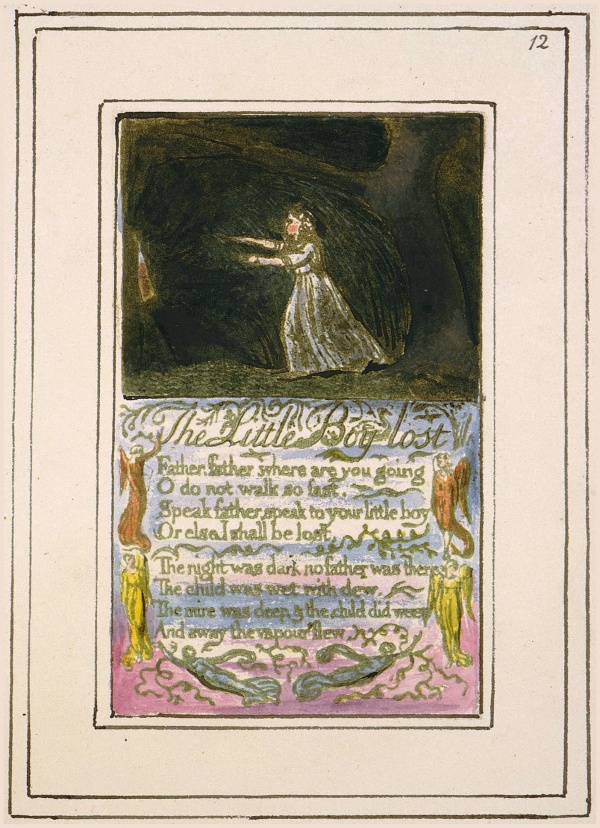 12
The Little Boy lost
Father, father, where are you going
O do not walk so fast.
Speak father, speak to your little boy
Or else I shall be lost,
The night was dark no father was there
The child was wet with dew.
The mire was deep, & the child did weep
And away the vapour flew.